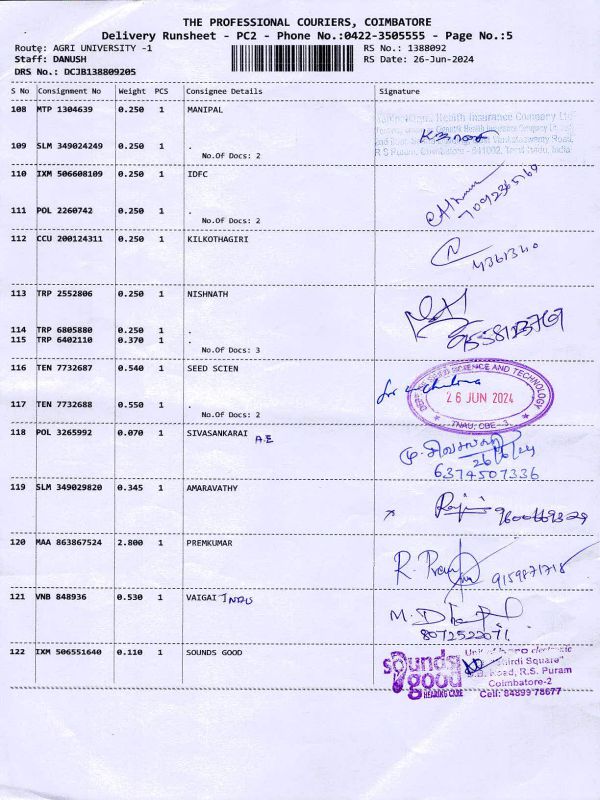 THE PROFESSIONAL COURIERS, COIMBATORE
Delivery Runsheet - PC2 - Phone No.:0422-3505555 - Page No.:5
Route: AGRI UNIVERSITY -1 RS No.: 1388092
Staff: DANUSH RS Date: 26-Jun-2024
DRS No.: DCJB138809205
S No Consignment No Weight PCS Consignee Details Signature
108 MTP 1304639 0.250 1 MANIPAL
Health Insurance Company Ltd
109 SLM 349024249 0.250 1 .
R S Puram, Coimbatore - 641002, Tamil Nadu, India
No.Of Docs: 2
110 IXM 506608109 0.250 1 IDFC
111 POL 2260742 0.250 1 .
No.Of Docs: 2
112 CCU 200124311 0.250 1 KILKOTHAGIRI
113 TRP 2552806 0.250 1 NISHNATH
114 TRP 6805880 0.250 1 .
115 TRP 6402110 0.370 1 .
No.Of Docs: 3
116 TEN 7732687 0.540 1 SEED SCIEN
SEED SCIENCE AND TECHNOLOGY
26 JUN 2024
TNAU, CBE - 3.
117 TEN 7732688 0.550 1 .
No.Of Docs: 2
118 POL 3265992 0.070 1 SIVASANKARAI A.E
26/6/24
6374507336
119 SLM 349029820 0.345 1 AMARAVATHY
120 MAA 863867524 2.800 1 PREMKUMAR
9159871718
121 VNB 848936 0.530 1 VAIGAI
8072522071
122 IXM 506551640 0.110 1 SOUNDS GOOD
sounds good
HEARING CARE
Road, R.S. Puram
Coimbatore-2
Cell: 84899 78677